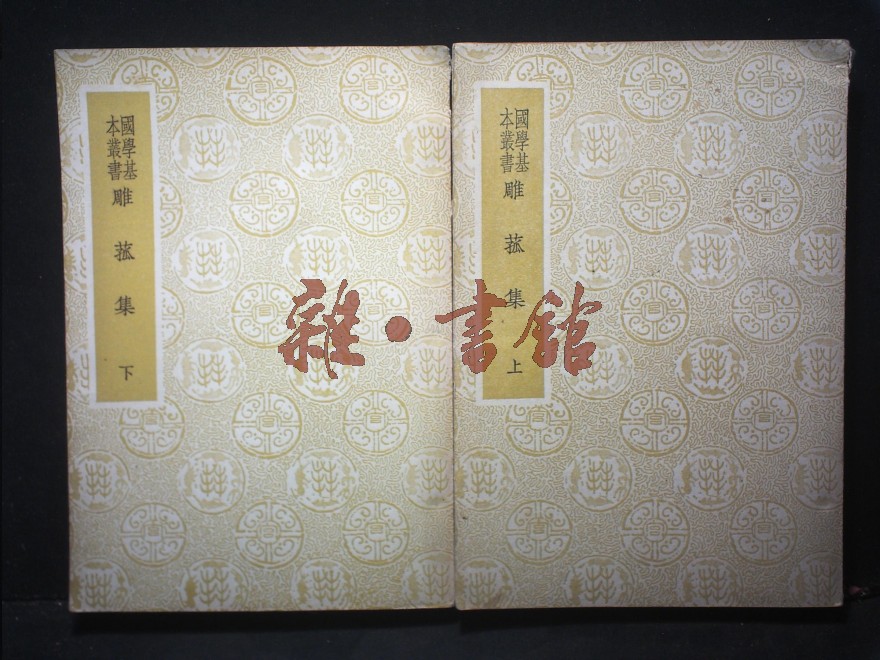 國學基
本叢書
雕菰集
上
國學基
本叢書
雕菰集
下
雜·書館